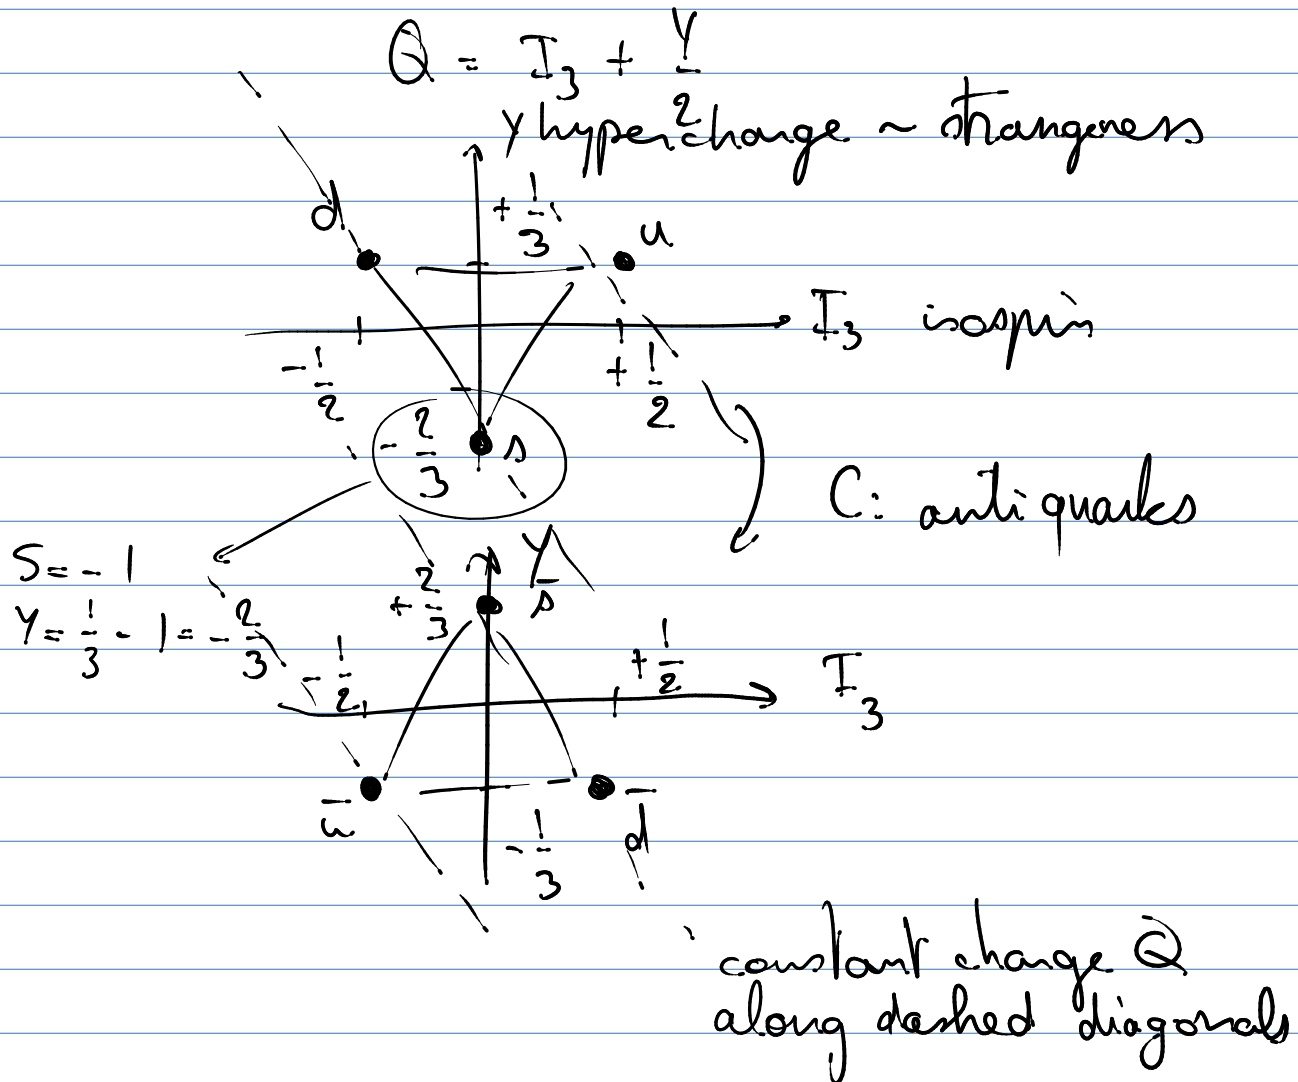 Q = I₃ + Y/2
Y hypercharge ~ strangeness
+ 1/3
d u
I₃ isospin
- 1/2 + 1/2
- 2/3 s
C: antiquarks
S = - 1
Y
+ 2/3 s̅
Y = 1/3 - 1 = - 2/3
- 1/2 + 1/2
I₃
u̅ d̅
- 1/3
constant charge Q
along dashed diagonals